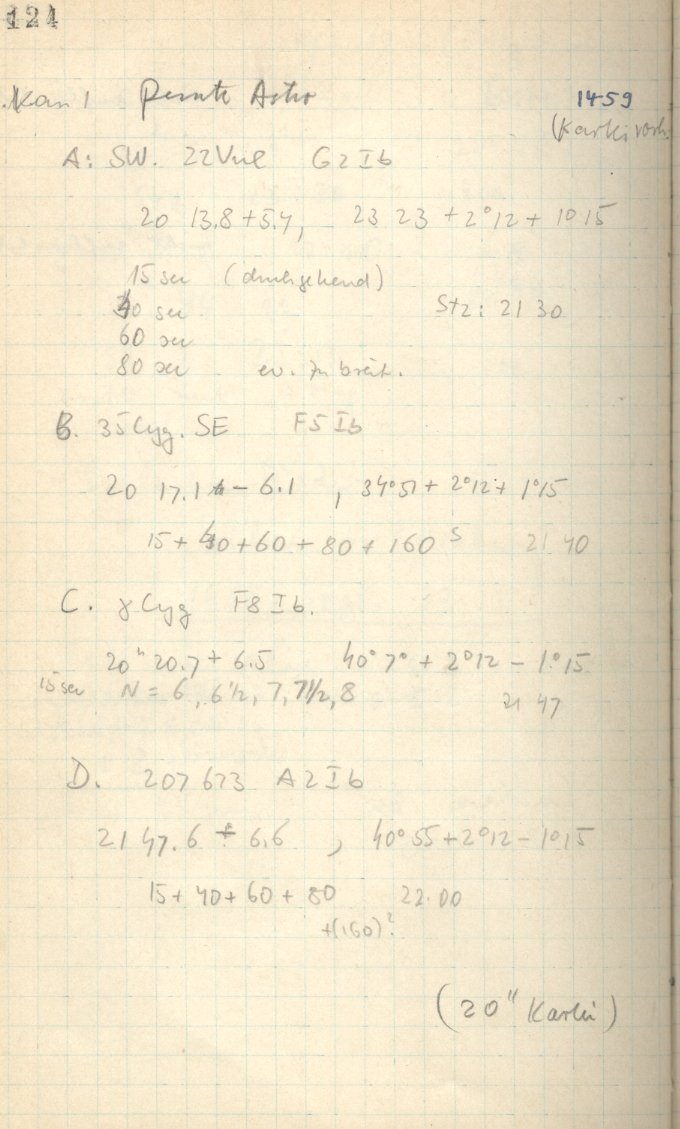 124
Kas 1 Astro 1459
(Karki vorh.
A: SW. 22 Vul G2 Ib
20 13.8 + 5.4, 23 23 + 2°12 + 1°15
15 sec (durchgehend)
40 sec Stz: 21 30
60 sec
80 sec ev. zu breit.
B. 35 Cyg. SE F5 Ib
20 17.1 - 6.1 , 34°51 + 2°12 + 1°15
15 + 40 + 60 + 80 + 160 s 21 40
C. γ Cyg F8 Ib.
20h 20.7 + 6.5 40° 7° + 2°12 - 1°15
15 sec N = 6, 6 1/2, 7, 7 1/2, 8 21 47
D. 207 673 A2 Ib
21 47.6 + 6.6 , 40° 55 + 2°12 - 1°15
15 + 40 + 60 + 80 22.00
+(160)?
(20" Karki)